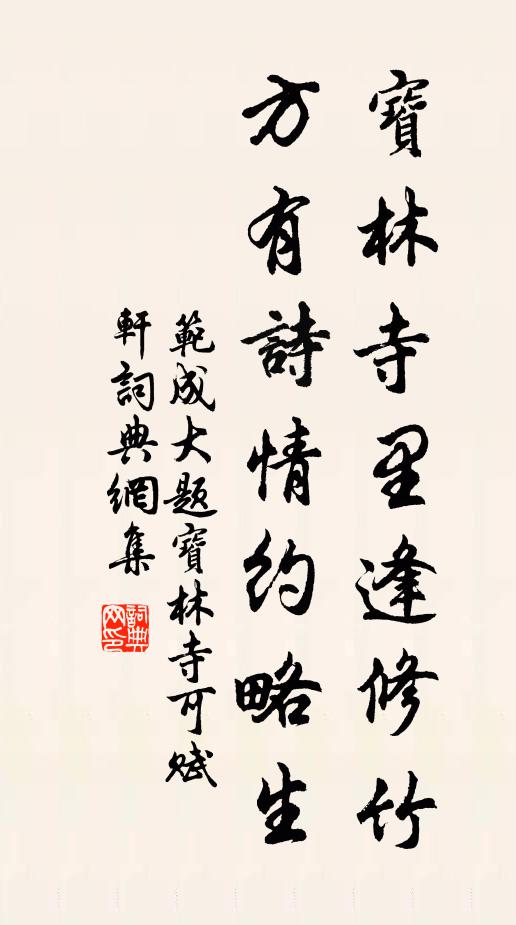 寶林寺里逢修竹
方有詩情約略生
範成大題寶林寺可賦
軒詞典網集
詞典
网印